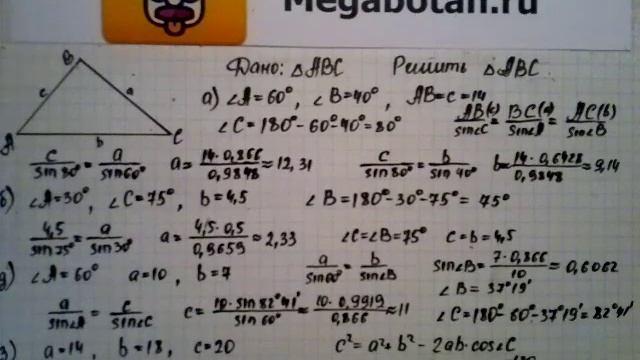 Megabotan.ru
Дано: △ABC Решить △ABC
B
c a
A b C
а) ∠A=60°, ∠B=40°, AB=c=14
∠C=180°-60°-40°=80° AB(c)/sin∠C = BC(a)/sin∠A = AC(b)/sin∠B
c/sin80° = a/sin60° a= 14·0,866/0,9848 ≈12,31 c/sin80° = b/sin40° b= 14·0,6428/0,9848 ≈9,14
б) ∠A=30°, ∠C=75°, b=4,5 ∠B=180°-30°-75°=75°
4,5/sin75° = a/sin30° a= 4,5·0,5/0,9659 ≈2,33 ∠C=∠B=75° c=b=4,5
∠A=60° a=10, b=7 a/sin60° = b/sin∠B sin∠B= 7·0,866/10 =0,6062
∠B=37°19'
a/sin∠A = c/sin∠C c= 10·sin82°41'/sin60° ≈ 10·0,9919/0,866 ≈11 ∠C=180°-60°-37°19'=82°41'
a=14, b=18, c=20 c²=a²+b²-2ab·cos∠C